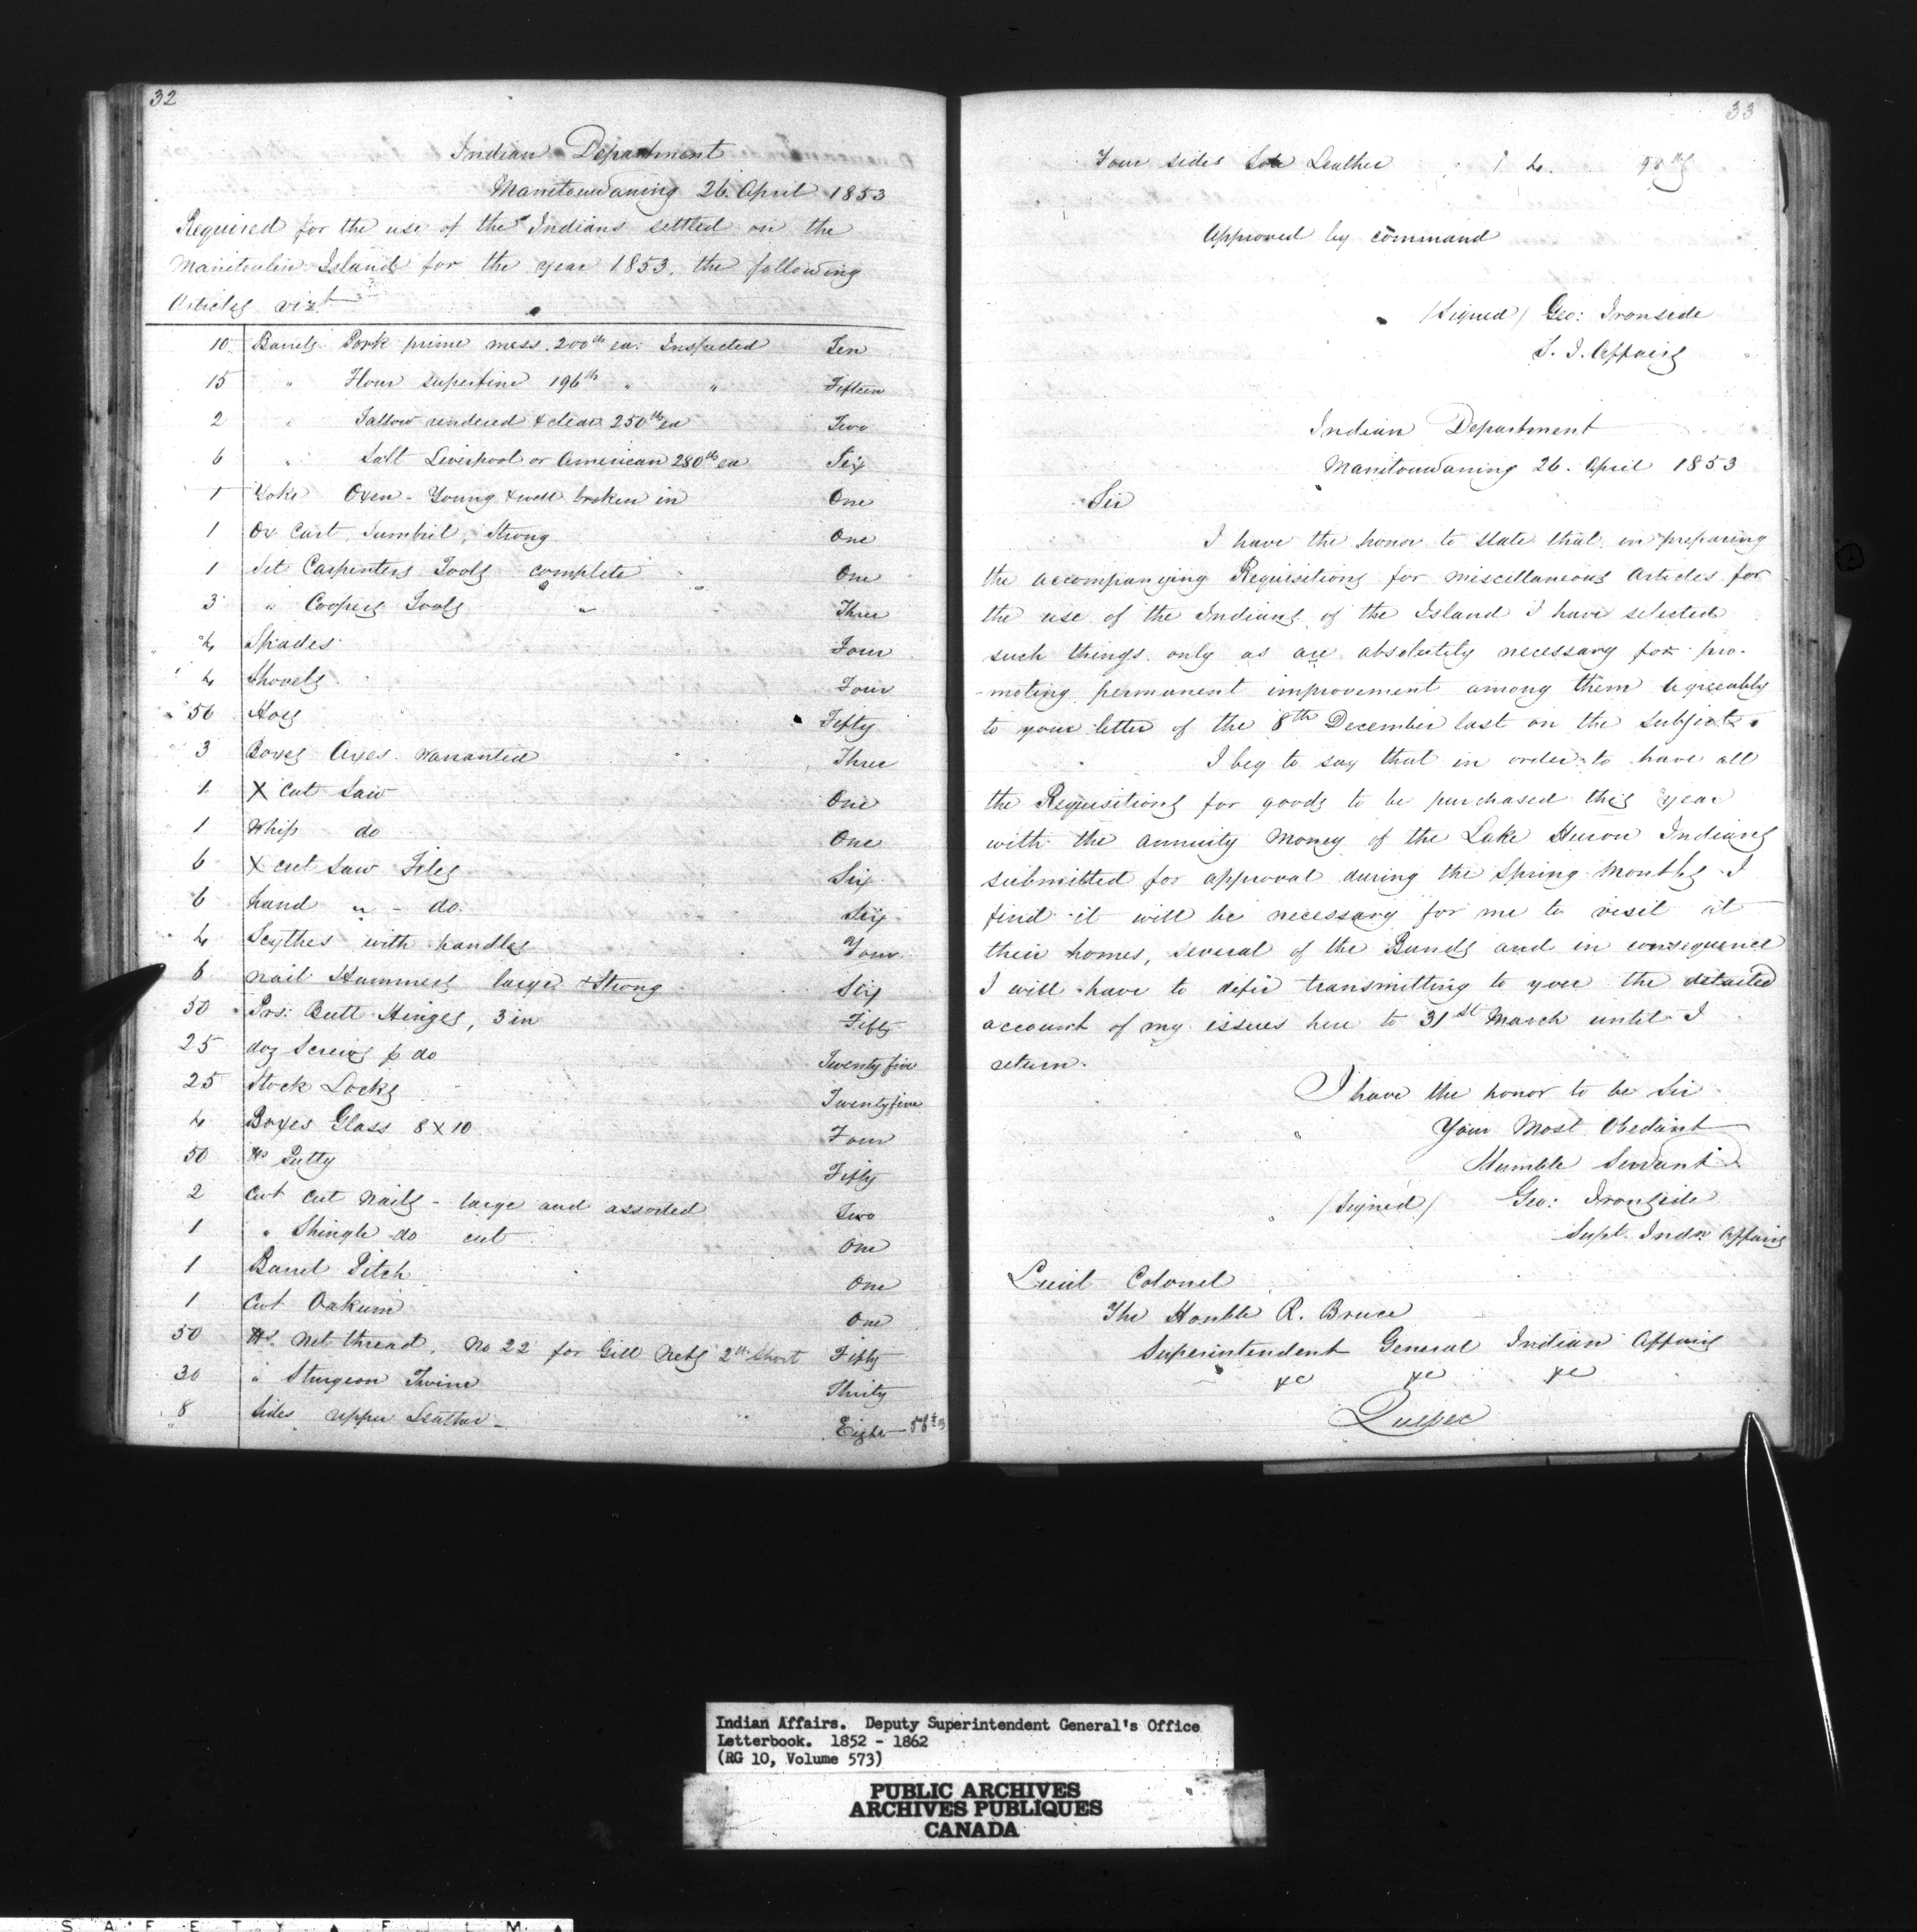 32
Indian Department
Manitouwaning 26. April 1853
Required for the use of the Indians settled on the
Manitoulin Island for the year 1853. the following
Articles vizt
10 Barrels Pork prime mess. 200 lb ea. Inspected Ten
15 " Flour superfine 196 lb " " Fifteen
2 " Tallow rendered & clear 250 lb ea Two
6 " Salt Liverpool or American 280 lb ea Six
1 Yoke Oxen - Young & well broken in One
1 Ox Cart, Tumbril, Strong One
1 Set Carpenters Tools complete One
3 " Coopers Tools " Three
4 Spades Four
4 Shovels Four
50 Hoes Fifty
3 Boxes Axes warranted Three
1 X cut Saw One
1 Whip do One
6 X cut Saw Files Six
6 hand " - do. Six
4 Scythes with handles Four
6 nail Hammers large & Strong Six
50 Prs: Butt Hinges, 3 in Fifty
25 doz Screws p do Twenty five
25 Stock Locks Twenty five
4 Boxes Glass 8 X 10 Four
50 lbs Putty Fifty
2 Cwt Cut Nails - large and assorted Two
1 " Shingle do cut One
1 Barrel Pitch One
1 Cwt Oakum One
50 lbs. Net thread, No 22 for Gill Nets Fifty
30 " Sturgeon Twine Thirty
8 Sides upper Leather - Eight
33
Four sides Sole Leather 4.
Approved by command
/Signed/ Geo: Ironside
S. I. Affairs
Indian Department
Manitouwaning 26. April 1853
Sir
I have the honor to state that in preparing
the accompanying Requisitions for miscellaneous Articles for
the use of the Indians of the Island I have selected
such things only as are absolutely necessary for pro-
-moting permanent improvement among them agreeably
to your letter of the 8th December last on the subject.
I beg to say that in order to have all
the Requisitions for goods to be purchased this year
with the annuity Money of the Lake Huron Indians
submitted for approval during the Spring Months I
find it will be necessary for me to visit at
their homes, several of the Bands and in consequence
I will have to defer transmitting to you the detailed
account of my issues here to 31st March until I
return.
I have the honor to be Sir
Your Most Obedient
Humble Servant
/Signed/ Geo: Ironside
Supt. Indn Affairs
Lieut Colonel
The Honble R. Bruce
Superintendent General Indian Affairs
&c &c &c
Quebec
Indian Affairs. Deputy Superintendent General's Office
Letterbook. 1852 - 1862
(RG 10, Volume 573)
PUBLIC ARCHIVES
ARCHIVES PUBLIQUES
CANADA
SAFETY FILM